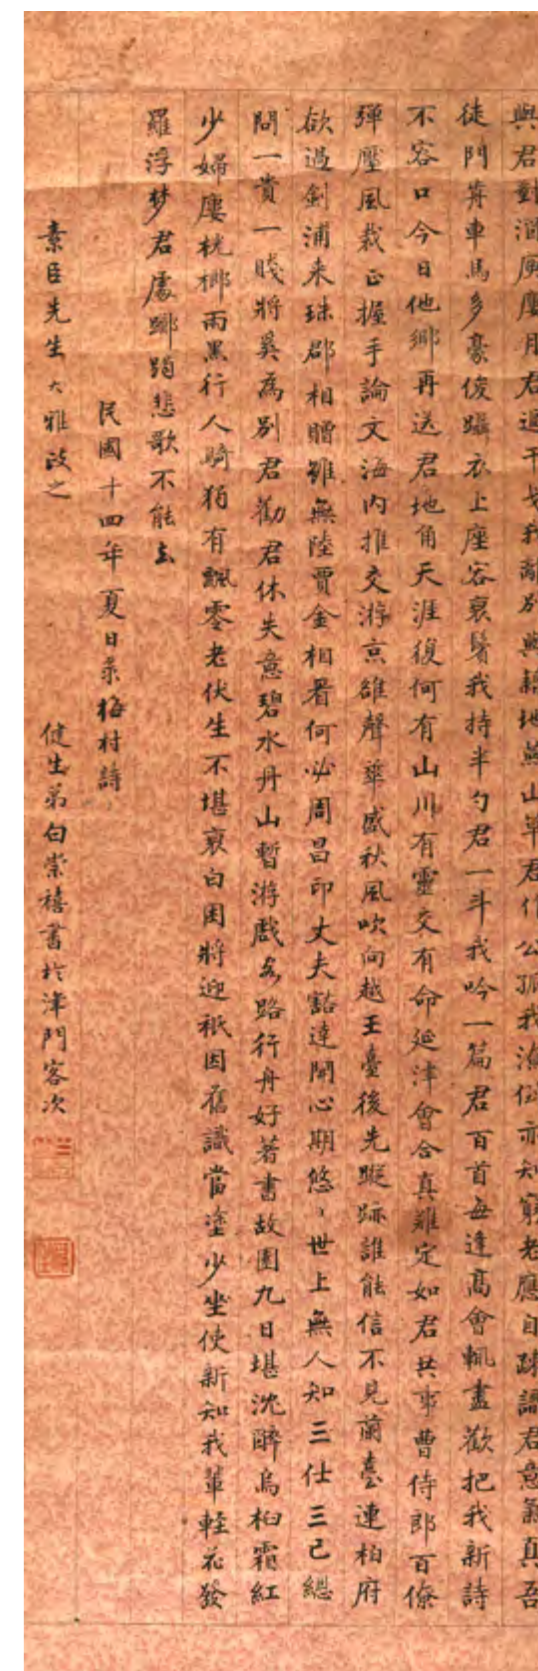 與君對酒風塵月君過干戈我離別與聽地無山草君作公孤我漁佃亦知窮老應自疎識君意氣真吾
徒門前車馬多豪俊躡衣上座容衰鬢我持半勺君一斗我吟一篇君百首每逢高會輒盡歡把我新詩
不容口今日他鄉再送君地角天涯復何有山川有靈交有命延津會合真難定如君共事曹侍郎百僚
彈壓風裁正握手論文海內推交游京雒聲華盛秋風吹向越王臺後先蹤跡誰能信不見蘭臺連柏府
欲過劍浦來珠郡相贈雖無陸賈金相看何必周昌印丈夫豁達開心期悠〻世上無人知三仕三已總
問一貴一賤將奚為別君勸君休失意碧水丹山暫游戲客路行舟好著書故園九日堪沈醉烏桕霜紅
少婦廔桄榔雨黑行人騎猶有飄零老伏生不堪衰白困將迎衹因舊識當塗少坐使新知我輩輕花發
羅浮夢君處躑躅悲歌不能去
民國十四年夏日录梅村詩
素臣先生大雅政之
健生弟白崇禧書於津門客次